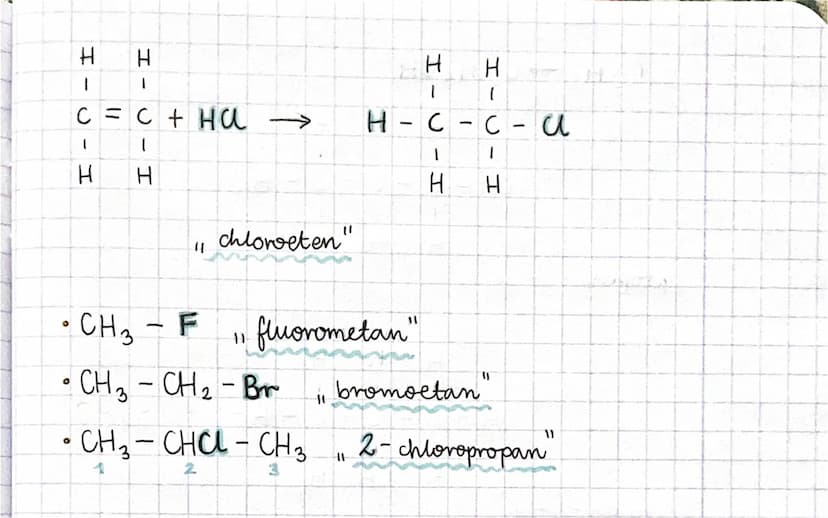 H H H H
| | | |
C = C + HCl → H - C - C - Cl
| | | |
H H H H
„chloroeten"
• CH₃ - F „fluorometan"
• CH₃ - CH₂ - Br „bromoetan"
• CH₃ - CHCl - CH₃ „2-chloropropan"
1 2 3